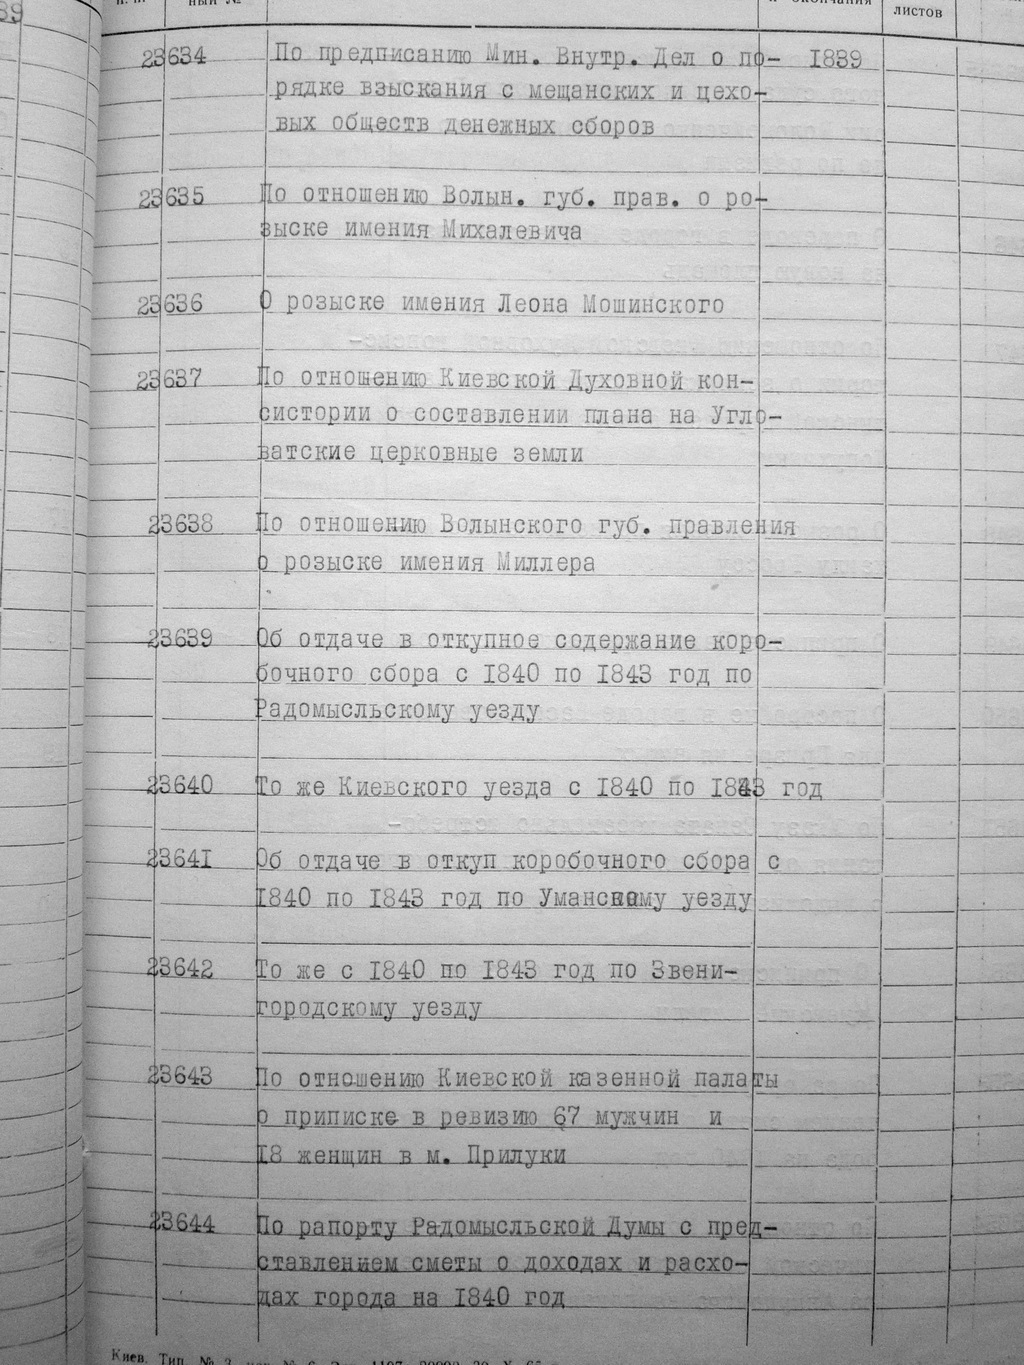 39
ный №
окончания
листов
23634 По предписанию Мин. Внутр. Дел о по- 1839
рядке взыскания с мещанских и цехо-
вых обществ денежных сборов
23635 По отношению Волын. губ. прав. о ро-
зыске имения Михалевича
23636 О розыске имения Леона Мошинского
23637 По отношению Киевской Духовной кон-
систории о составлении плана на Угло-
ватские церковные земли
23638 По отношению Волынского губ. правления
о розыске имения Миллера
23639 Об отдаче в откупное содержание коро-
бочного сбора с 1840 по 1843 год по
Радомысльскому уезду
23640 То же Киевского уезда с 1840 по 1843 год
23641 Об отдаче в откуп коробочного сбора с
1840 по 1843 год по Уманскому уезду
23642 То же с 1840 по 1843 год по Звени-
городскому уезду
23643 По отношению Киевской казенной палаты
о приписке в ревизию 67 мужчин и
18 женщин в м. Прилуки
23644 По рапорту Радомысльской Думы с пред-
ставлением сметы о доходах и расхо-
дах города на 1840 год
Киев. Тип. №